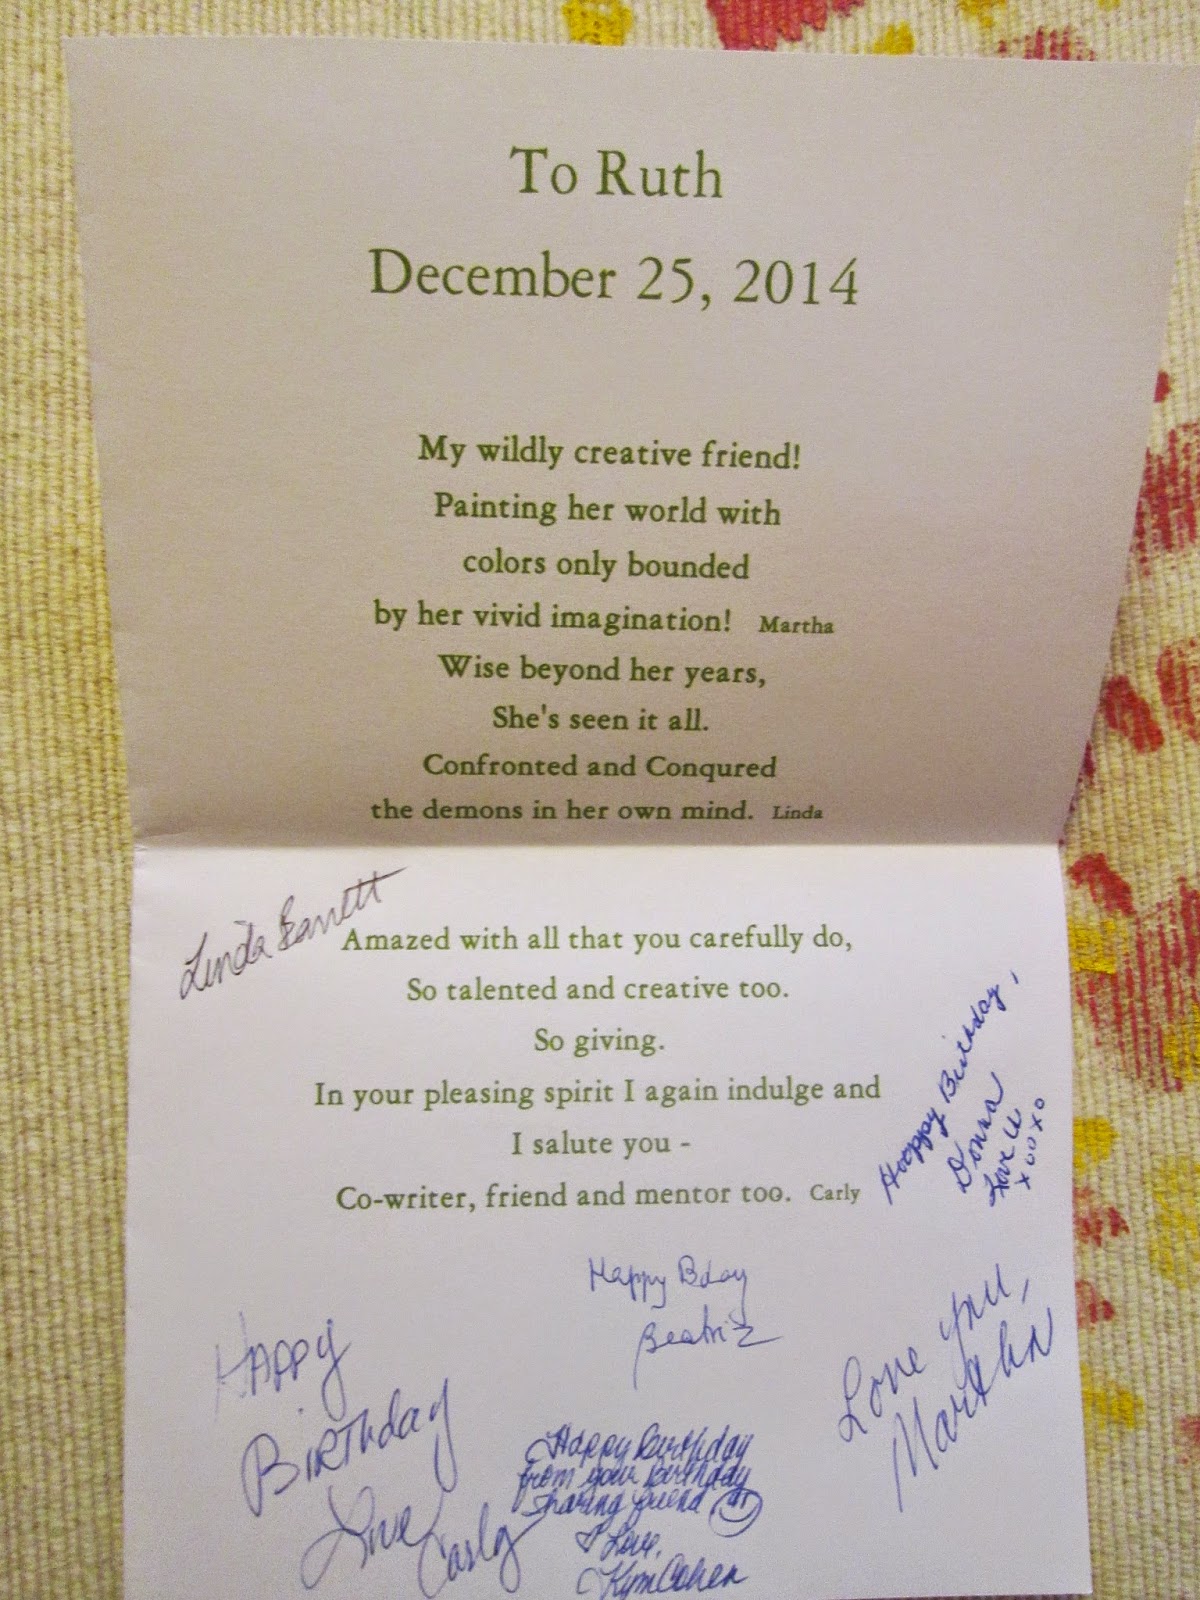 To Ruth
December 25, 2014
My wildly creative friend!
Painting her world with
colors only bounded
by her vivid imagination! Martha
Wise beyond her years,
She's seen it all.
Confronted and Conqured
the demons in her own mind. Linda
Linda Barrett
Amazed with all that you carefully do,
So talented and creative too.
So giving.
In your pleasing spirit I again indulge and
I salute you -
Co-writer, friend and mentor too. Carly
Happy Birthday,
Donna
Love U
xooxo
Happy Bday
Beatriz
Love You,
Martha
Happy
Birthday
Love Carly
Happy Birthday
from your birthday
sharing friend
Love,
Kym Cohen